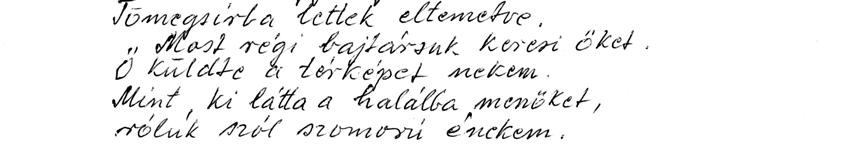 Tömegsírba lettek eltemetve.
Most régi bajtársuk keresi őket.
Ő küldte a térképet nekem.
Mint, ki látta a halálba menőket,
róluk szól szomorú énekem.